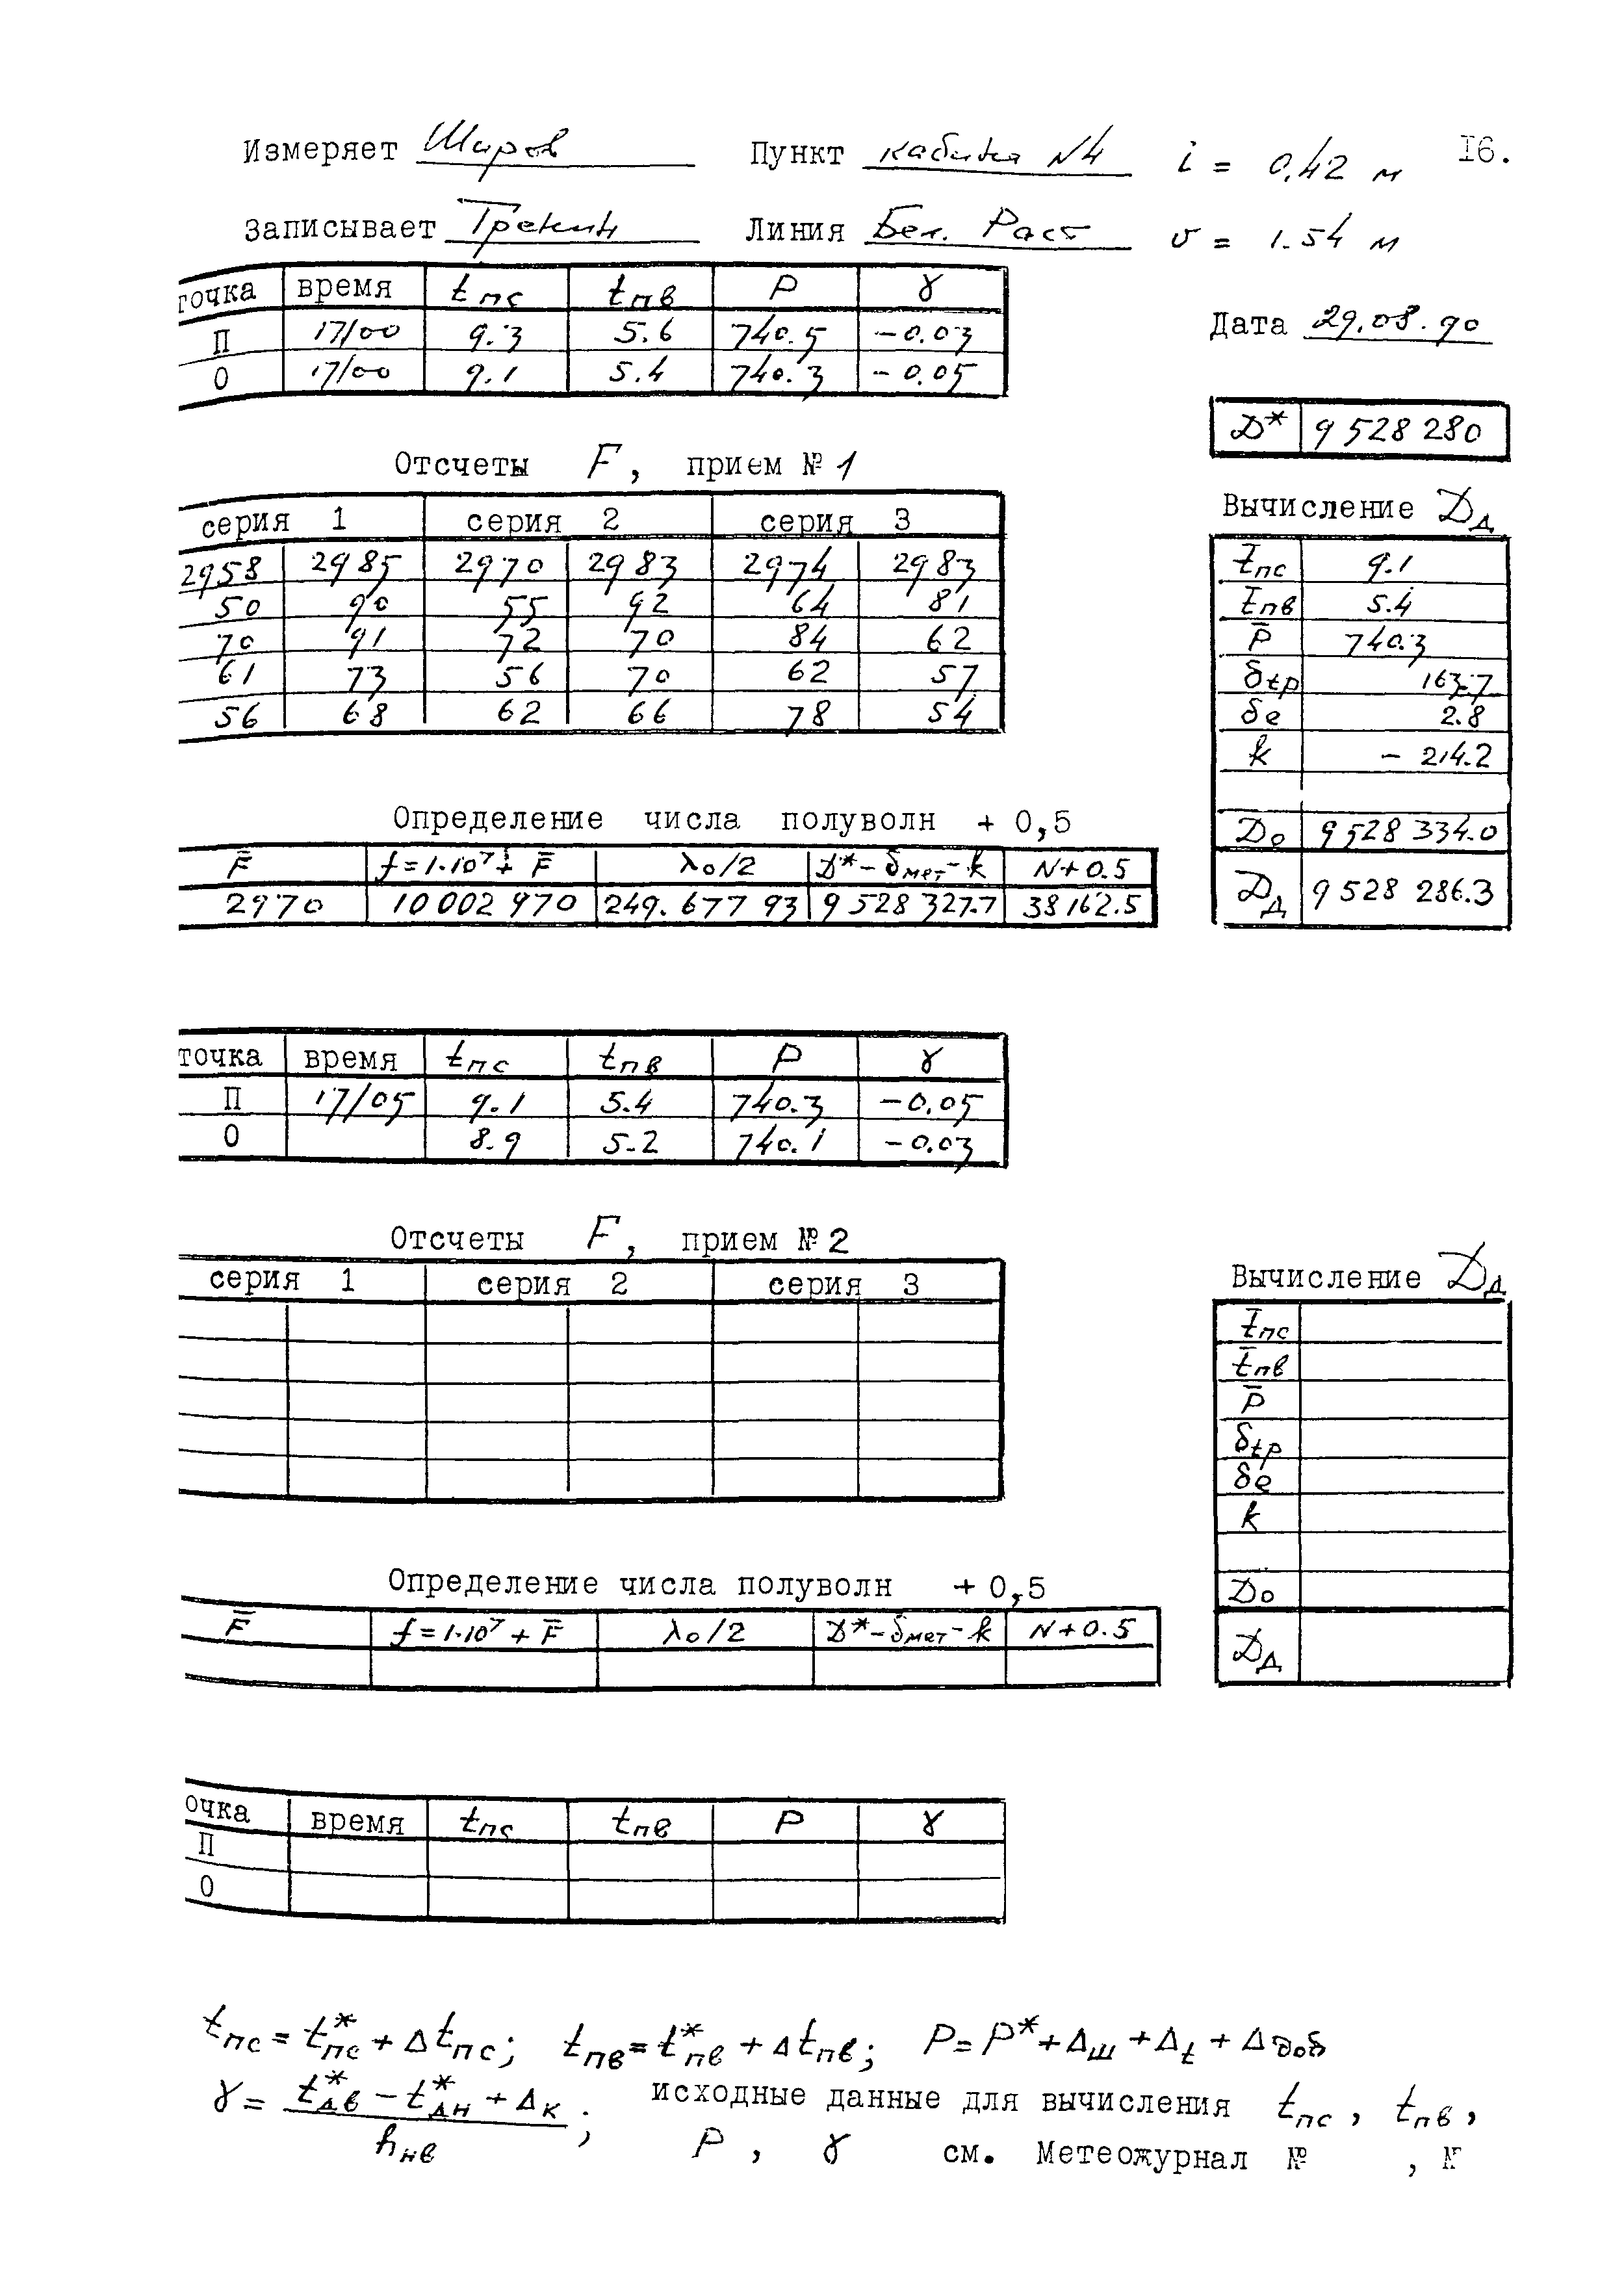 Измеряет Широв Пункт кабина N4 i = 0.42 м I6.
Записывает Трекин Линия Бел. Раст v = 1.54 м
точка время tпс tпв P γ
П 17/00 9.3 5.6 740.5 -0.03
О 17/00 9.1 5.4 740.3 -0.05
Дата 29.08.90
D* 9 528 280
Отсчеты F, прием № 1
серия 1 серия 2 серия 3
2958 2985 2970 2983 2974 2983
50 90 55 92 64 81
70 91 72 70 84 62
61 73 56 70 62 57
56 68 62 66 78 54
Вычисление Dд
t̄пс 9.1
t̄пв 5.4
P̄ 740.3
δtp 163.7
δe 2.8
k - 214.2
D₀ 9 528 334.0
Dд 9 528 286.3
Определение числа полуволн + 0,5
F̄ f=1·10⁷+ F̄ λ₀/2 D*-δмет-k N+0.5
2970 10 002 970 249.677 93 9 528 327.7 38 162.5
точка время tпс tпв P γ
П 17/05 9.1 5.4 740.3 -0.05
О 8.9 5.2 740.1 -0.03
Отсчеты F, прием № 2
серия 1 серия 2 серия 3
Вычисление Dд
t̄пс
t̄пв
P̄
δtp
δe
k
D₀
Dд
Определение числа полуволн + 0,5
F̄ f=1·10⁷+ F̄ λ₀/2 D*-δмет-k N+0.5
очка время tпс tпв P γ
П
О
tпс = t*пс + Δtпс; tпв = t*пв + Δtпв; P = P* + Δш + Δt + Δдоб
γ = (t*дв - t*дн + Δк) / hнв; исходные данные для вычисления tпс, tпв,
P, γ см. Метеожурнал № , №